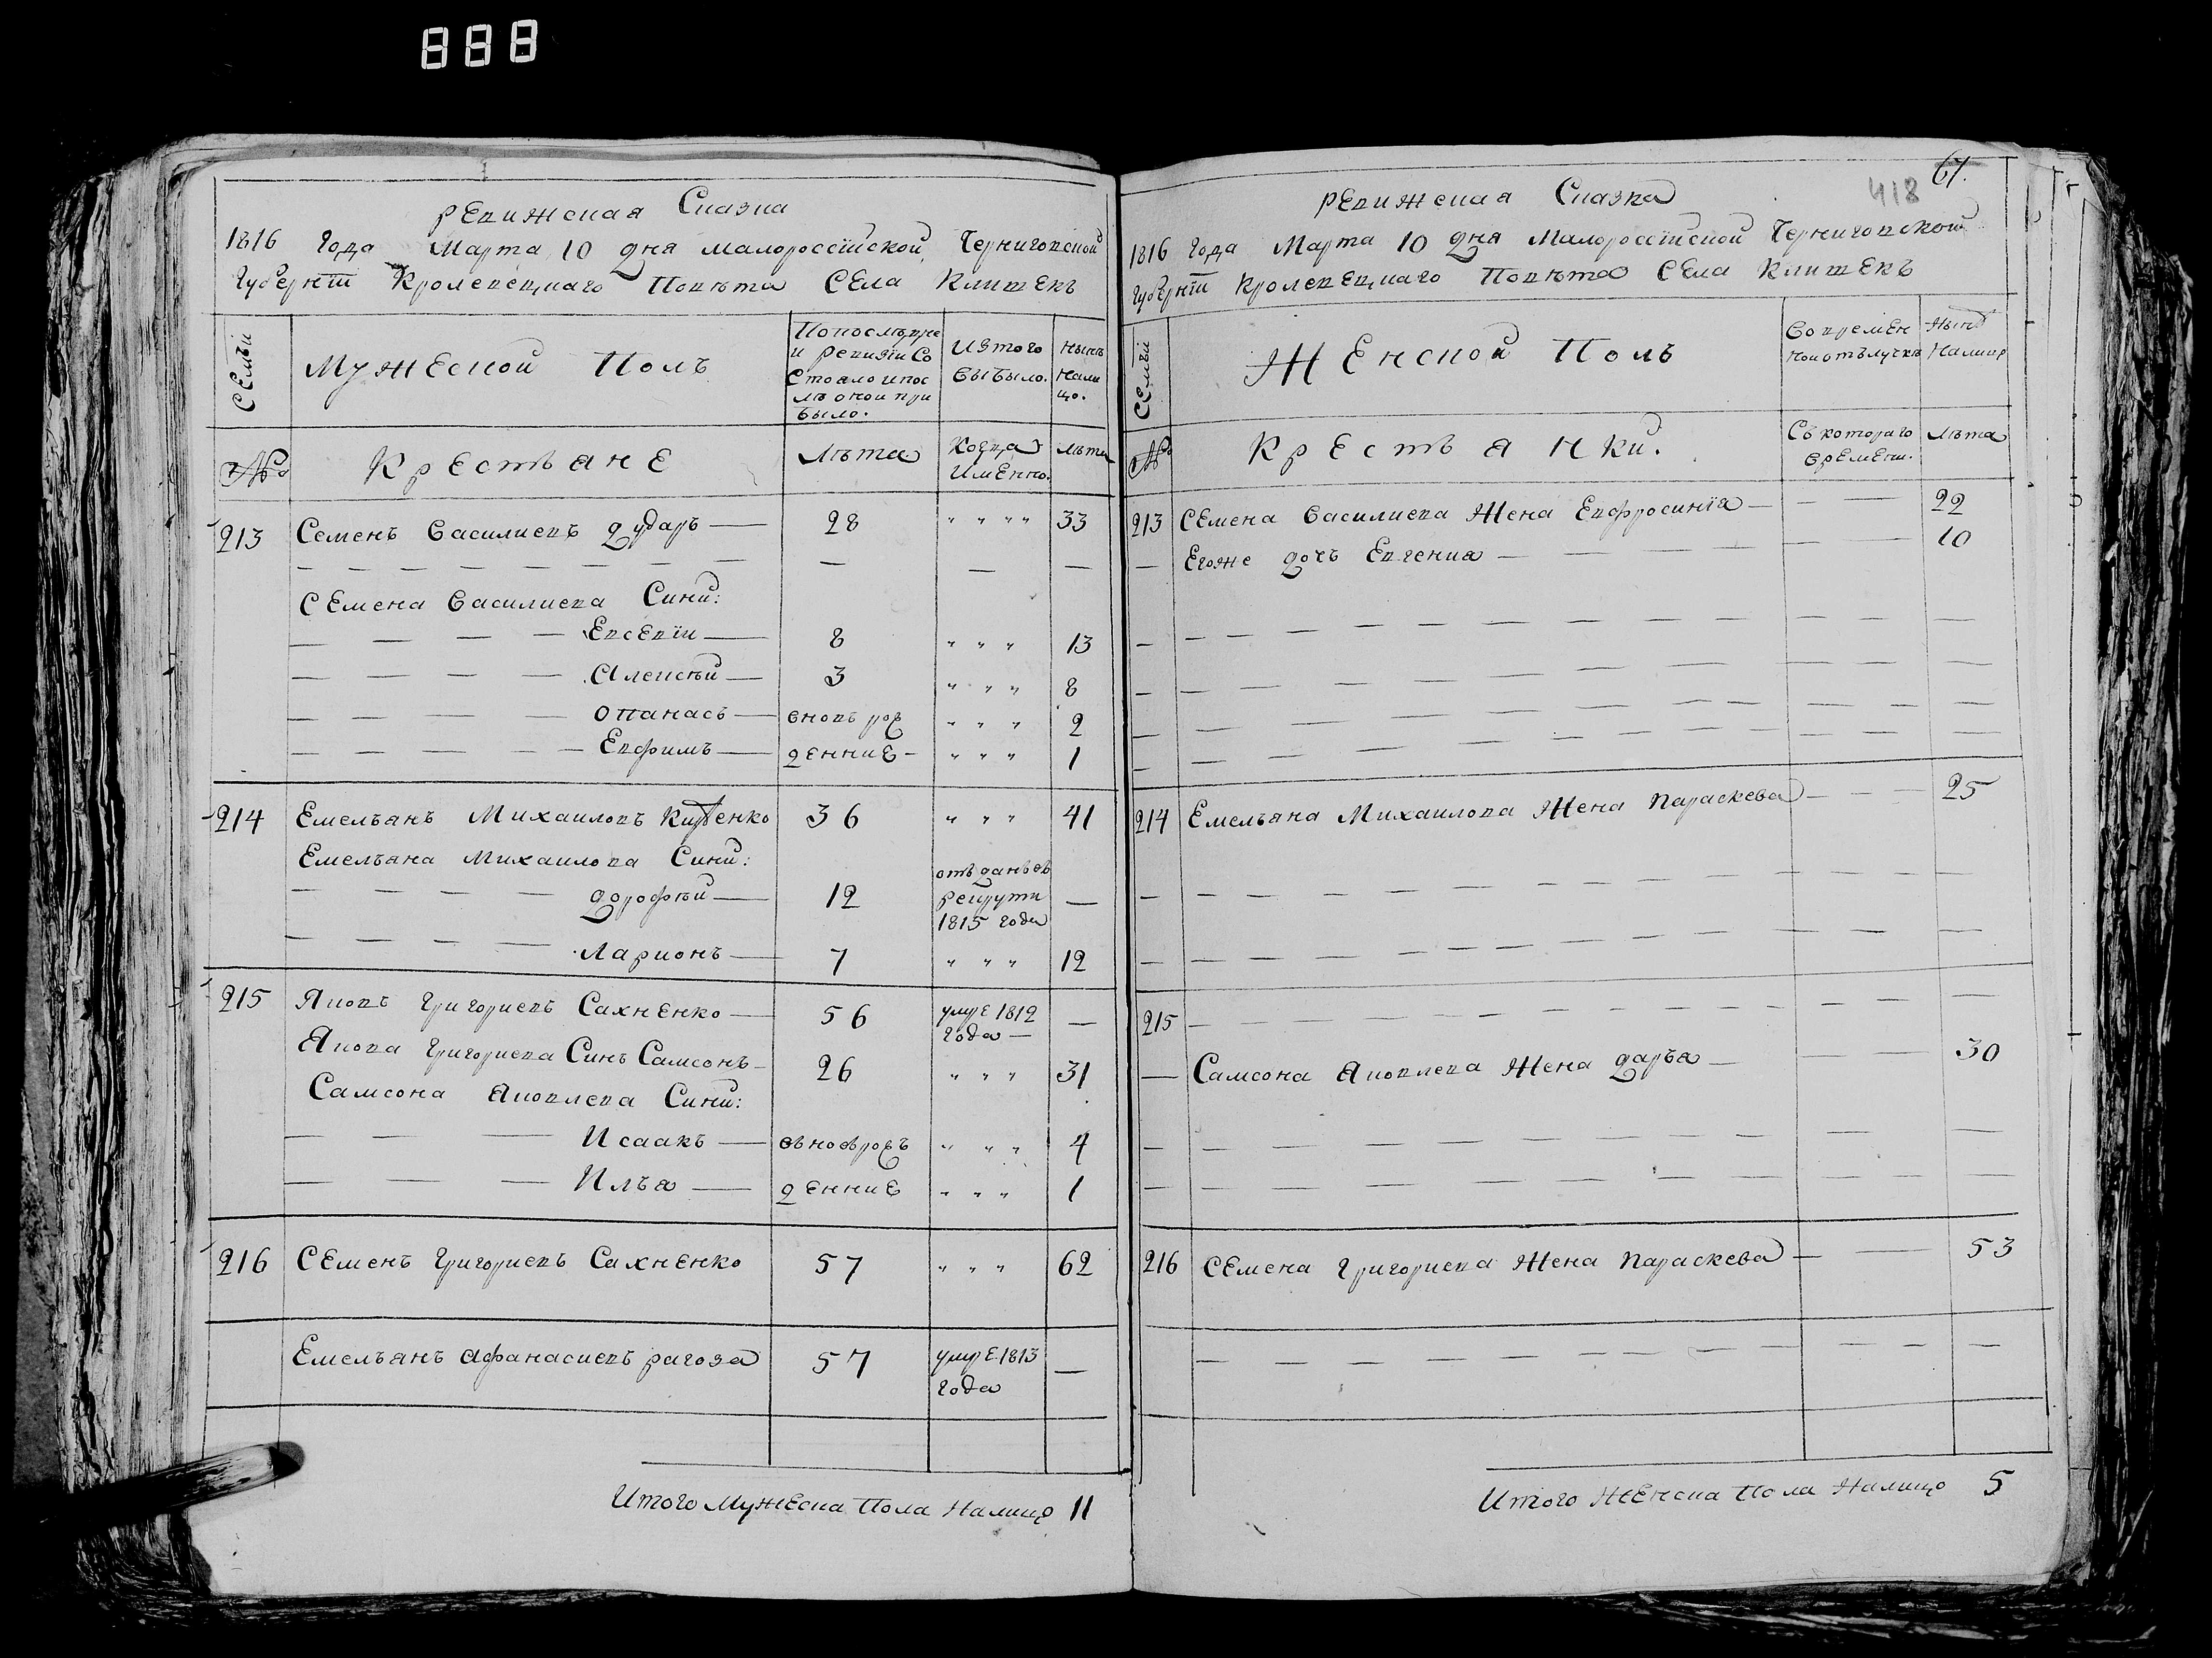 888
Ревижская Сказка
1816 Года Марта 10 дня малороссїйской Черниговской
Губернїи Кролевецкаго Повѣта Села Клишекъ
Семьи
Мужеской Полъ
По послѣдне
и ревизїи Со
стояло и пос
лѣ оной при
было.
Из того
выбыло.
Нынѣ
нали
цо.
№
Крестьяне
Лѣта
Когда
имЕнно.
лѣта
213 Семенъ Василиевъ дударъ — 28 " " " " 33
Семена Василиева Сини:
Евсевїи — 8 " " " 13
Алексѣй — 3 " " " 8
Опанасъ — вновь рож " " " 2
Евфимъ — дЕнниЕ — " " " 1
214 Емельянъ Михаиловъ 36 " " " 41
Емельяна Михаилова Сини:
дорофѣй — 12 отъданъ въ
рекрути
1815 года —
Ларионъ — 7 " " " 12
215 Яковъ Григориевъ Сахненко — 56 умрЕ 1812
года — —
Якова Григориева Синъ Самсонъ — 26 " " " 31
Самсона Яковлева Сини:
Исаакъ — вьновьрож " " " 4
Илья — дЕнниЕ " " " 1
216 Семенъ Григориевъ Сахненко 57 " " " 62
Емельянъ Афанасиевъ рагоза 57 умрЕ 1813
года —
Итого Мужеска Пола Налицо 11
67.
418
Ревижская Сказка
1816 Года Марта 10 дня Малороссїйской Черниговской
Губернїи Кролевецкаго Повѣта Села Клишекъ
Семьи
Женской Полъ
Во времен
ной отълучкѣ
Нынѣ
Налицо
№
Крестьянки.
Съ котораго
времЕни.
Лѣта
213 Семена Василиева Жена Евфросинїя — — — 22
Егоже дочь Евгения — — — 10
214 Емельяна Михаилова Жена Параскева — — — 25
215
Самсона Яковлева Жена дарья — — — 30
216 Семена Григориева Жена Параскева — — 53
Итого Женска Пола Налицо 5